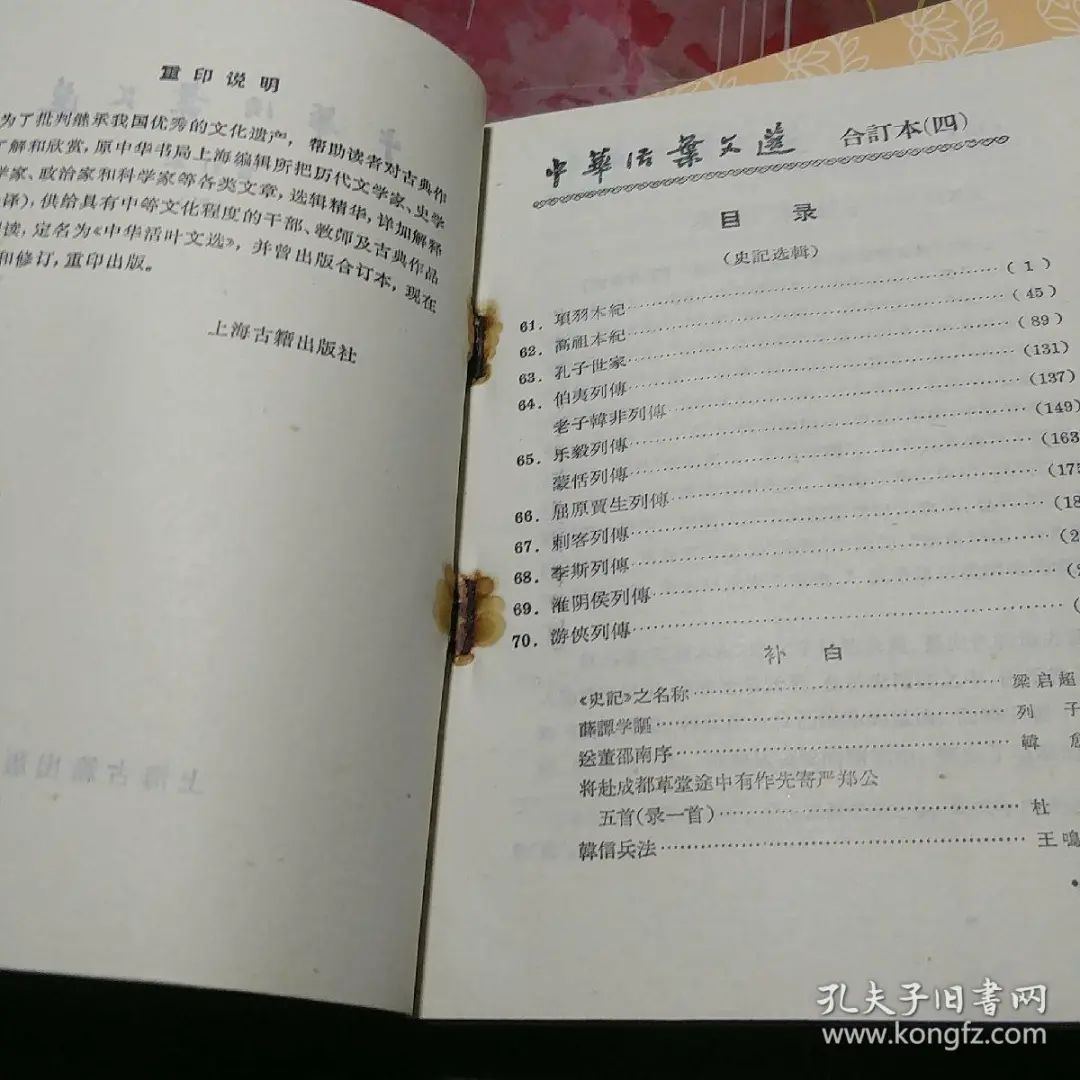 重印说明
为了批判继承我国优秀的文化遗产，帮助读者对古典作
了解和欣赏，原中华书局上海编辑所把历代文学家、史学
学家、政治家和科学家等各类文章，选辑精华，详加解释
译)，供给具有中等文化程度的干部、教师及古典作品
读，定名为《中华活叶文选》，并曾出版合订本，现在
和修订，重印出版。
上海古籍出版社
中華活葉文选 合訂本(四)
目录
(史記选輯)
61. 項羽本紀……(1)
62. 高祖本紀……(45)
63. 孔子世家……(89)
64. 伯夷列傳……(131)
老子韓非列傳……(137)
65. 乐毅列傳……(149)
蒙恬列傳……(163
66. 屈原賈生列傳……(175
67. 刺客列傳……(18
68. 李斯列傳……(2
69. 淮阴侯列傳……(2
70. 游俠列傳……(
补白
《史記》之名称……梁启超
薛譚学謳……列子
送董邵南序……韓愈
将赴成都草堂途中有作先寄严郑公
五首(录一首)……杜
韓信兵法……王鳴
孔夫子旧书网
www.kongfz.com